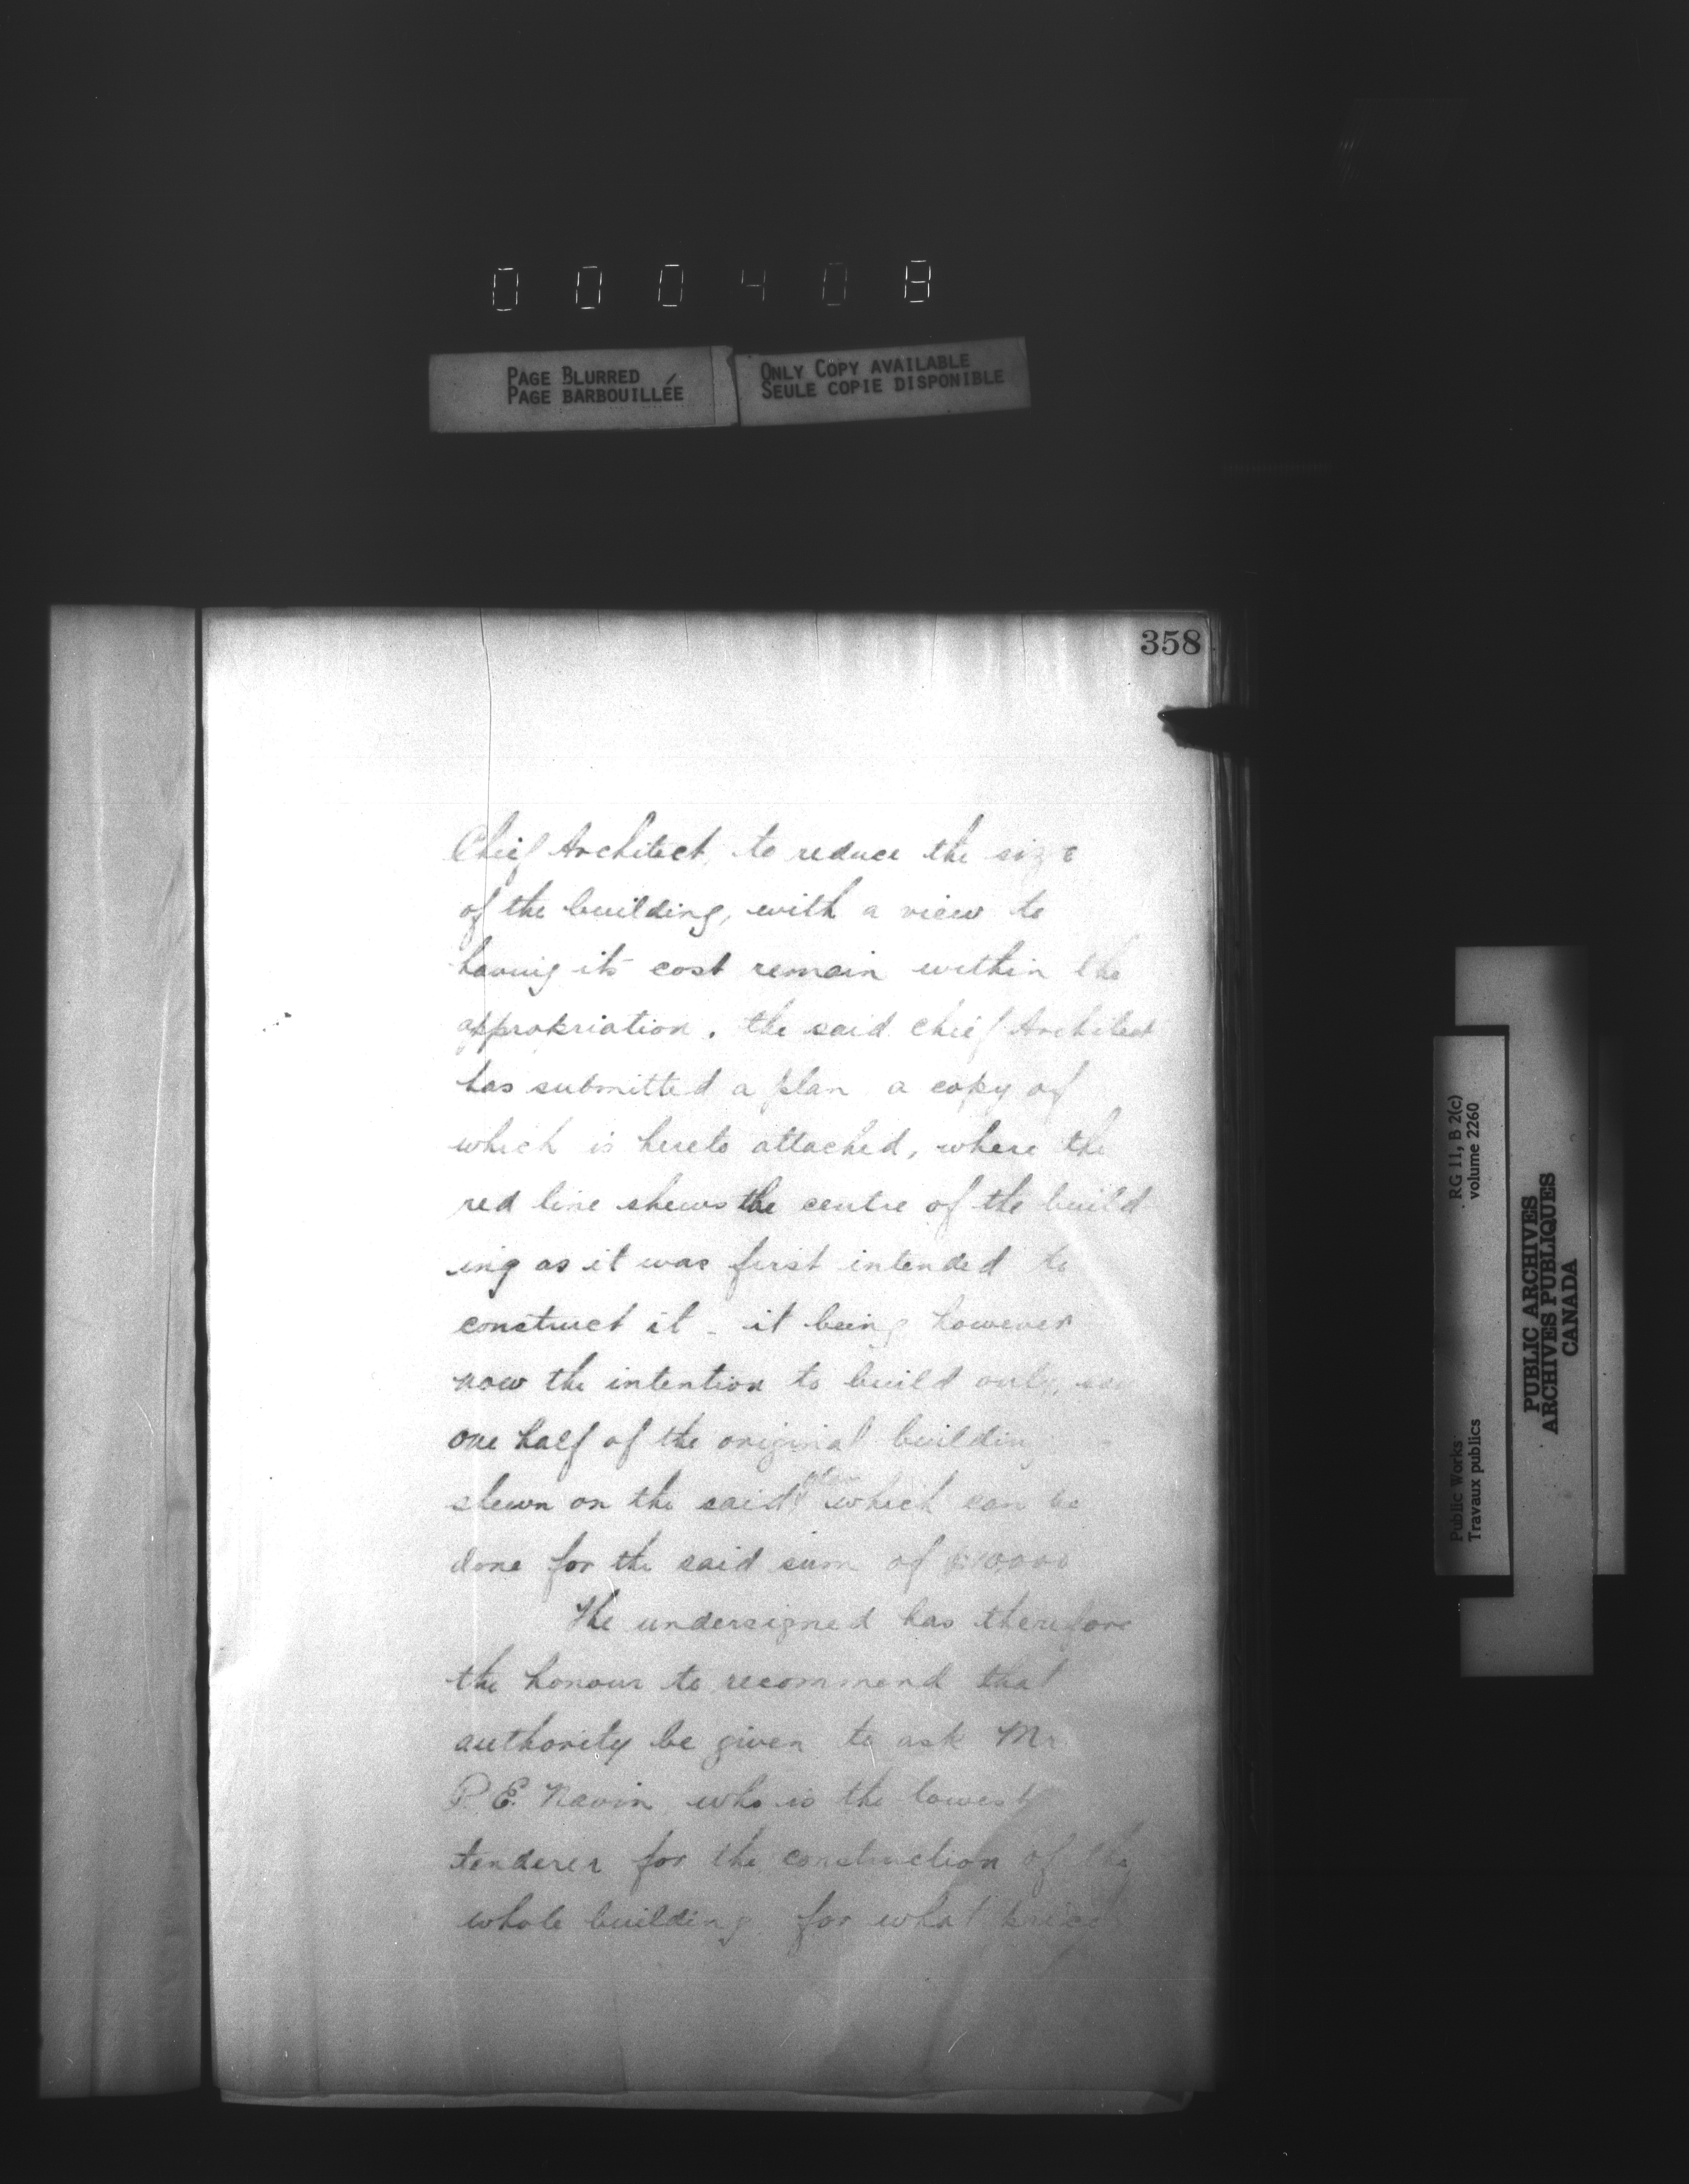 000408
PAGE BLURRED
PAGE BARBOUILLÉE
ONLY COPY AVAILABLE
SEULE COPIE DISPONIBLE
358
Chief Architect, to reduce the size
of the building, with a view to
having its cost remain within the
appropriation. the said Chief Architect
has submitted a plan a copy of
which is hereto attached, where the
red line shews the centre of the build
ing as it was first intended to
construct it - it being however
now the intention to build only, say
one half of the original building
shewn on the said plan which can be
done for the said sum of $10000
The undersigned has therefore
the honour to recommend that
authority be given to ask Mr
P. E. Navin who is the lowest
tenderer for the construction of the
whole building, for what price
RG 11, B 2(c)
volume 2260
Public Works
Travaux publics
PUBLIC ARCHIVES
ARCHIVES PUBLIQUES
CANADA